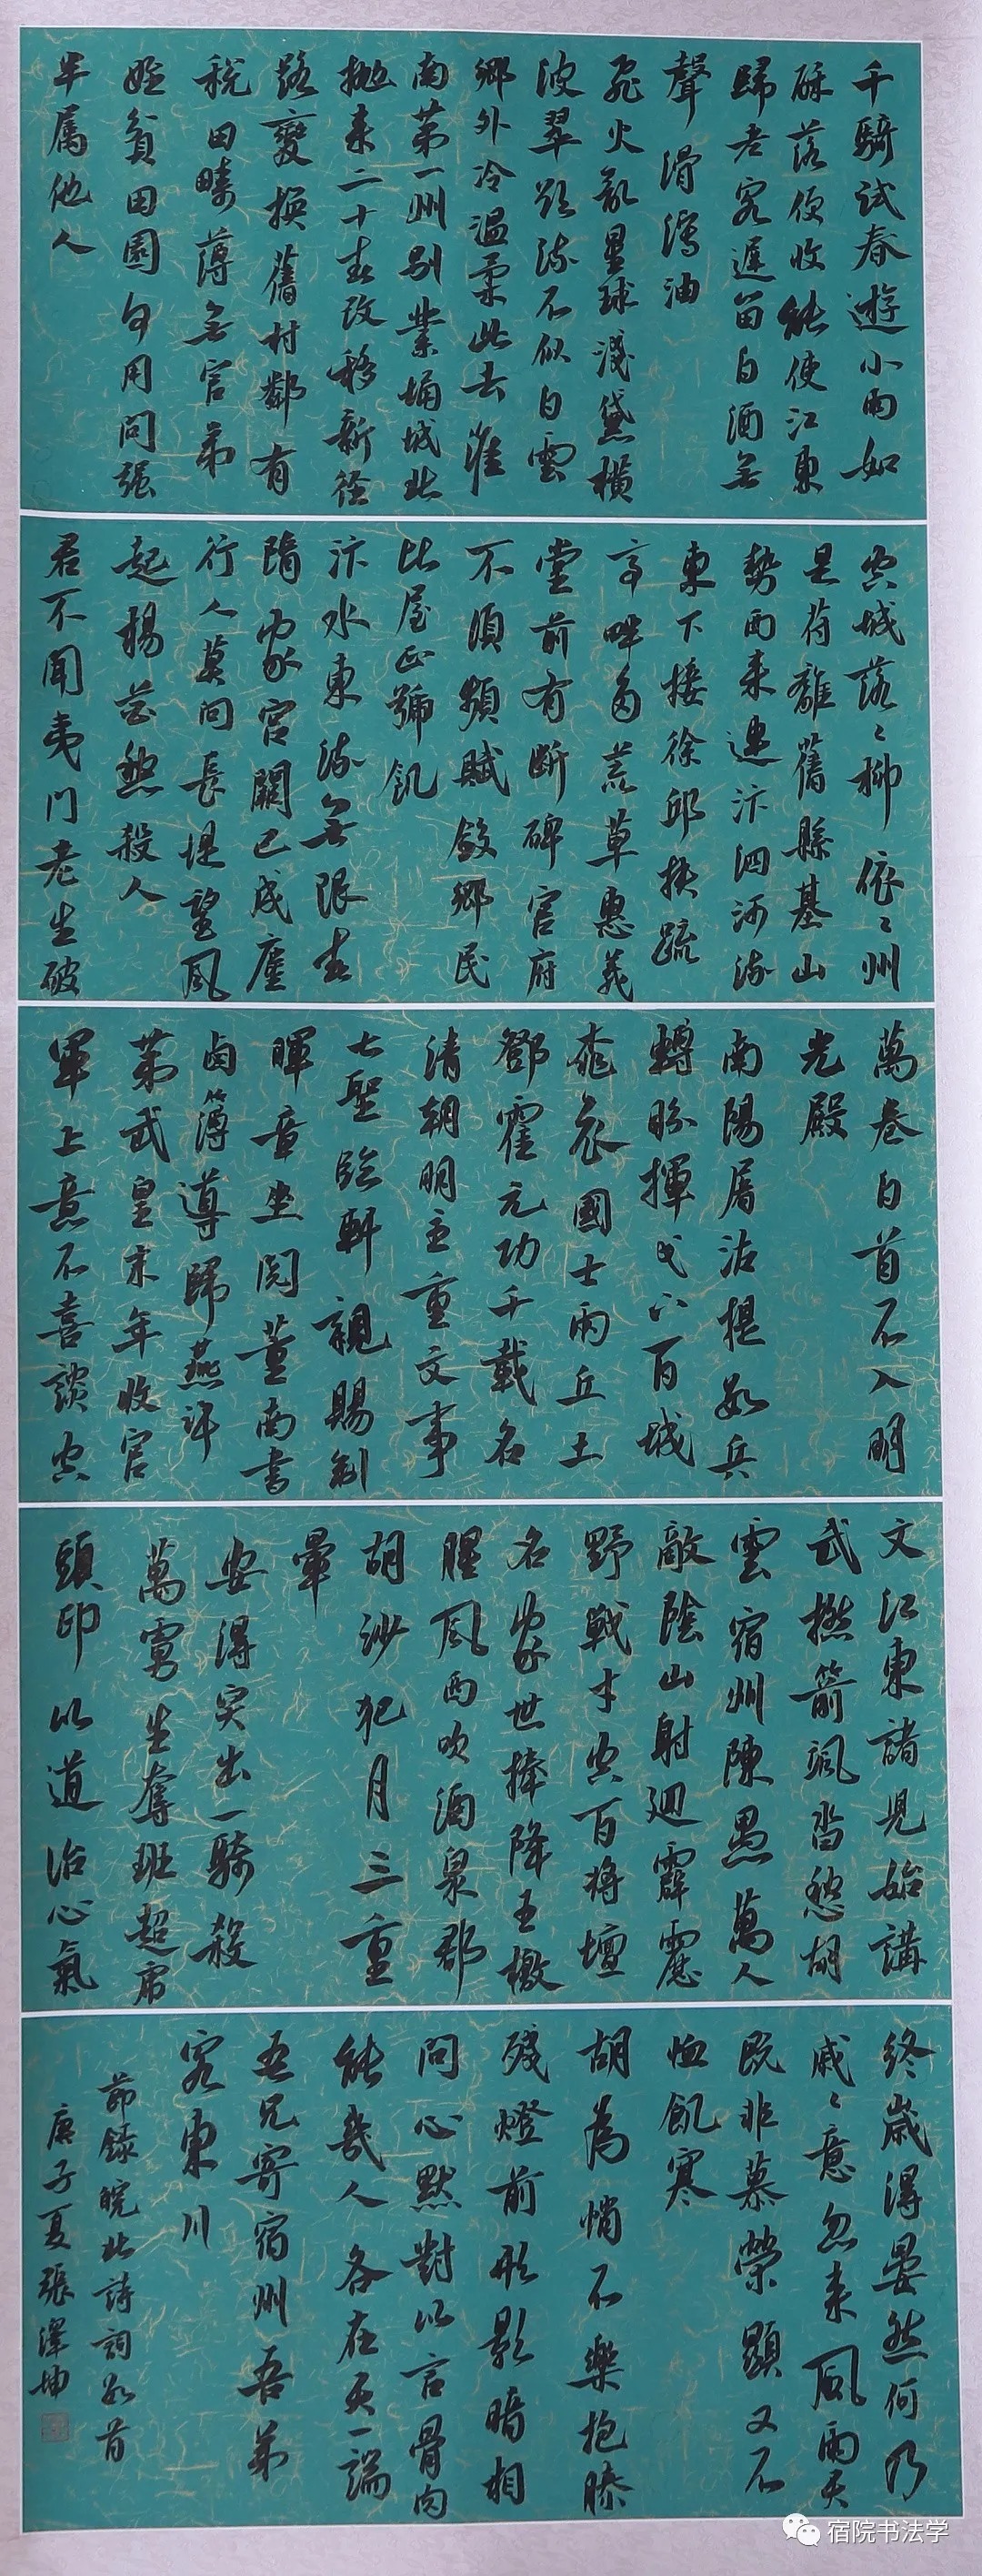 千騎試春遊小雨如
酥落便收能使江東
歸老客遲留白酒無
聲滑瀉油
飛火亂星球淺黛橫
波翠欲流不似白雲
鄉外冷温柔此去淮
南第一州别業埇城北
抛来二十春改移新徑
路變換舊村鄰有
税田疇薄無官弟
姪貧田園何用問强
半属他人
空城落〻柳依〻州
是苻離舊縣基山
勢西来連汴泗河流
東下接徐邳扶疏
亭畔多荒草惠義
堂前有断碑官府
不須頻賦斂鄉民
比屋正號飢
汴水東流無限春
隋家宫闕已成塵
行人莫问長堤望風
起楊花愁殺人
君不聞夷门老生破
萬卷白首不入明
光殿
南陽屠沽提数兵
轉盼揮戈下百城
庬衣國士兩丘土
鄧霍元功千載名
清朝明主重文事
七聖臨軒親賜劍
暉章坐閲董南書
鹵簿導歸燕許
第武皇末年收官
軍上意不喜談空
文江東諸兒始講
武撚箭颯沓愁胡
雲宿州陳愚萬人
敵陰山射迴霹靂
野戰才空百將壇
名家世捧降王檄
腥風西吹酒泉郡
胡沙犯月三重
暈
安得突出一騎殺
萬虜生奪班超席
頭印以道治心氣
终歲得晏然何乃
戚〻意忽来風雨天
既非慕榮顯又不
恤飢寒
胡為悄不樂抱膝
殘燈前形影暗相
问心默對以言骨肉
能幾人各在天一端
吾兄寄宿州吾弟
客東川
節録皖北詩詞数首
庚子夏張澤坤
宿院书法学